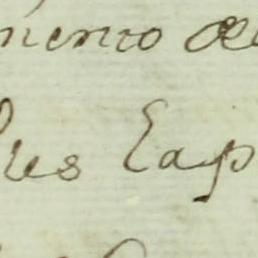 mento de
les Cap